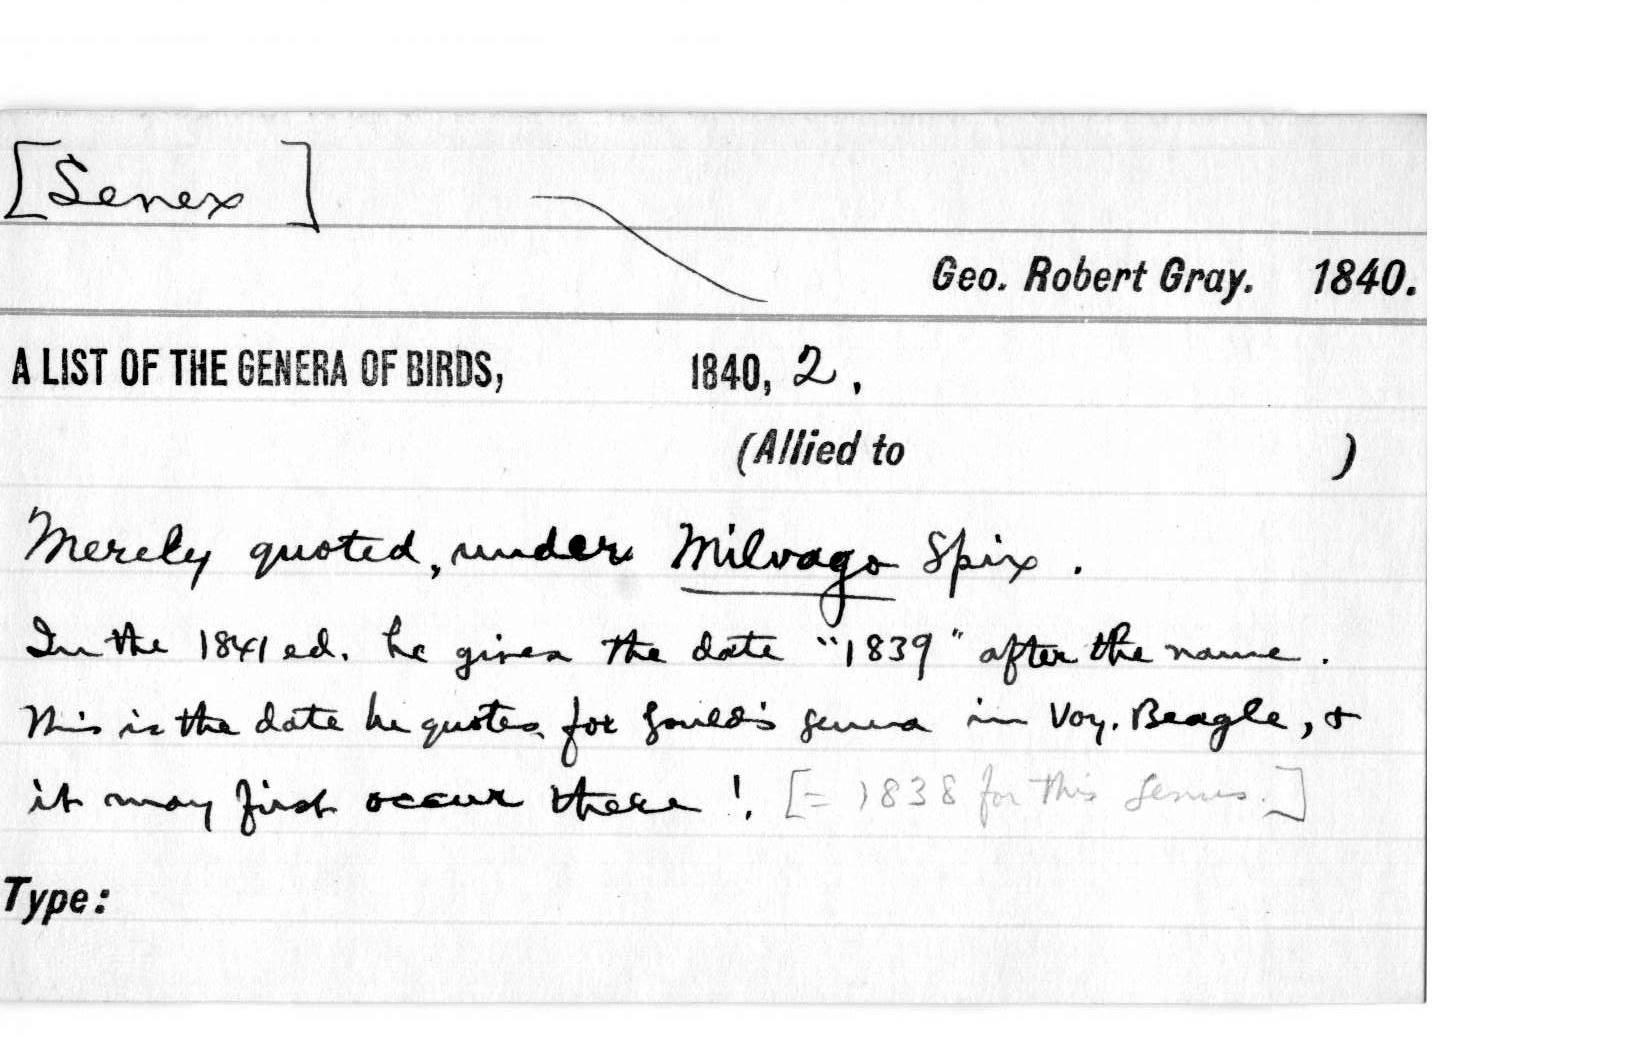 [Senex]
Geo. Robert Gray. 1840.
A LIST OF THE GENERA OF BIRDS, 1840, 2.
(Allied to )
Merely quoted, under Milvago Spix.
In the 1841 ed. he gives the date "1839" after the name.
This is the date he quotes for Gould's genera in Voy. Beagle, &
it may first occur there!. [= 1838 for this genus.]
Type: